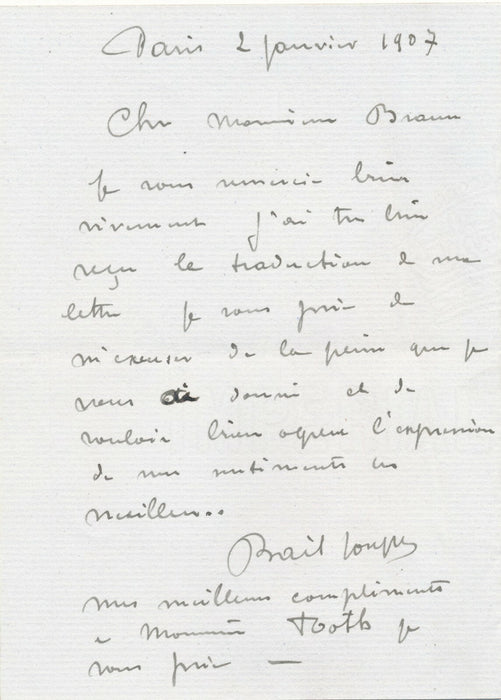 Paris 2 janvier 1907
Cher Monsieur Braun
Je vous remercie bien
vivement j'ai très bien
reçu la traduction de ma
lettre je vous prie de
m'excuser de la peine que je
vous ai donné et de
vouloir bien agréer l'expression
de mes sentiments les
meilleurs..
mes meilleurs compliments
a Monsieur Tooth je
vous prie —